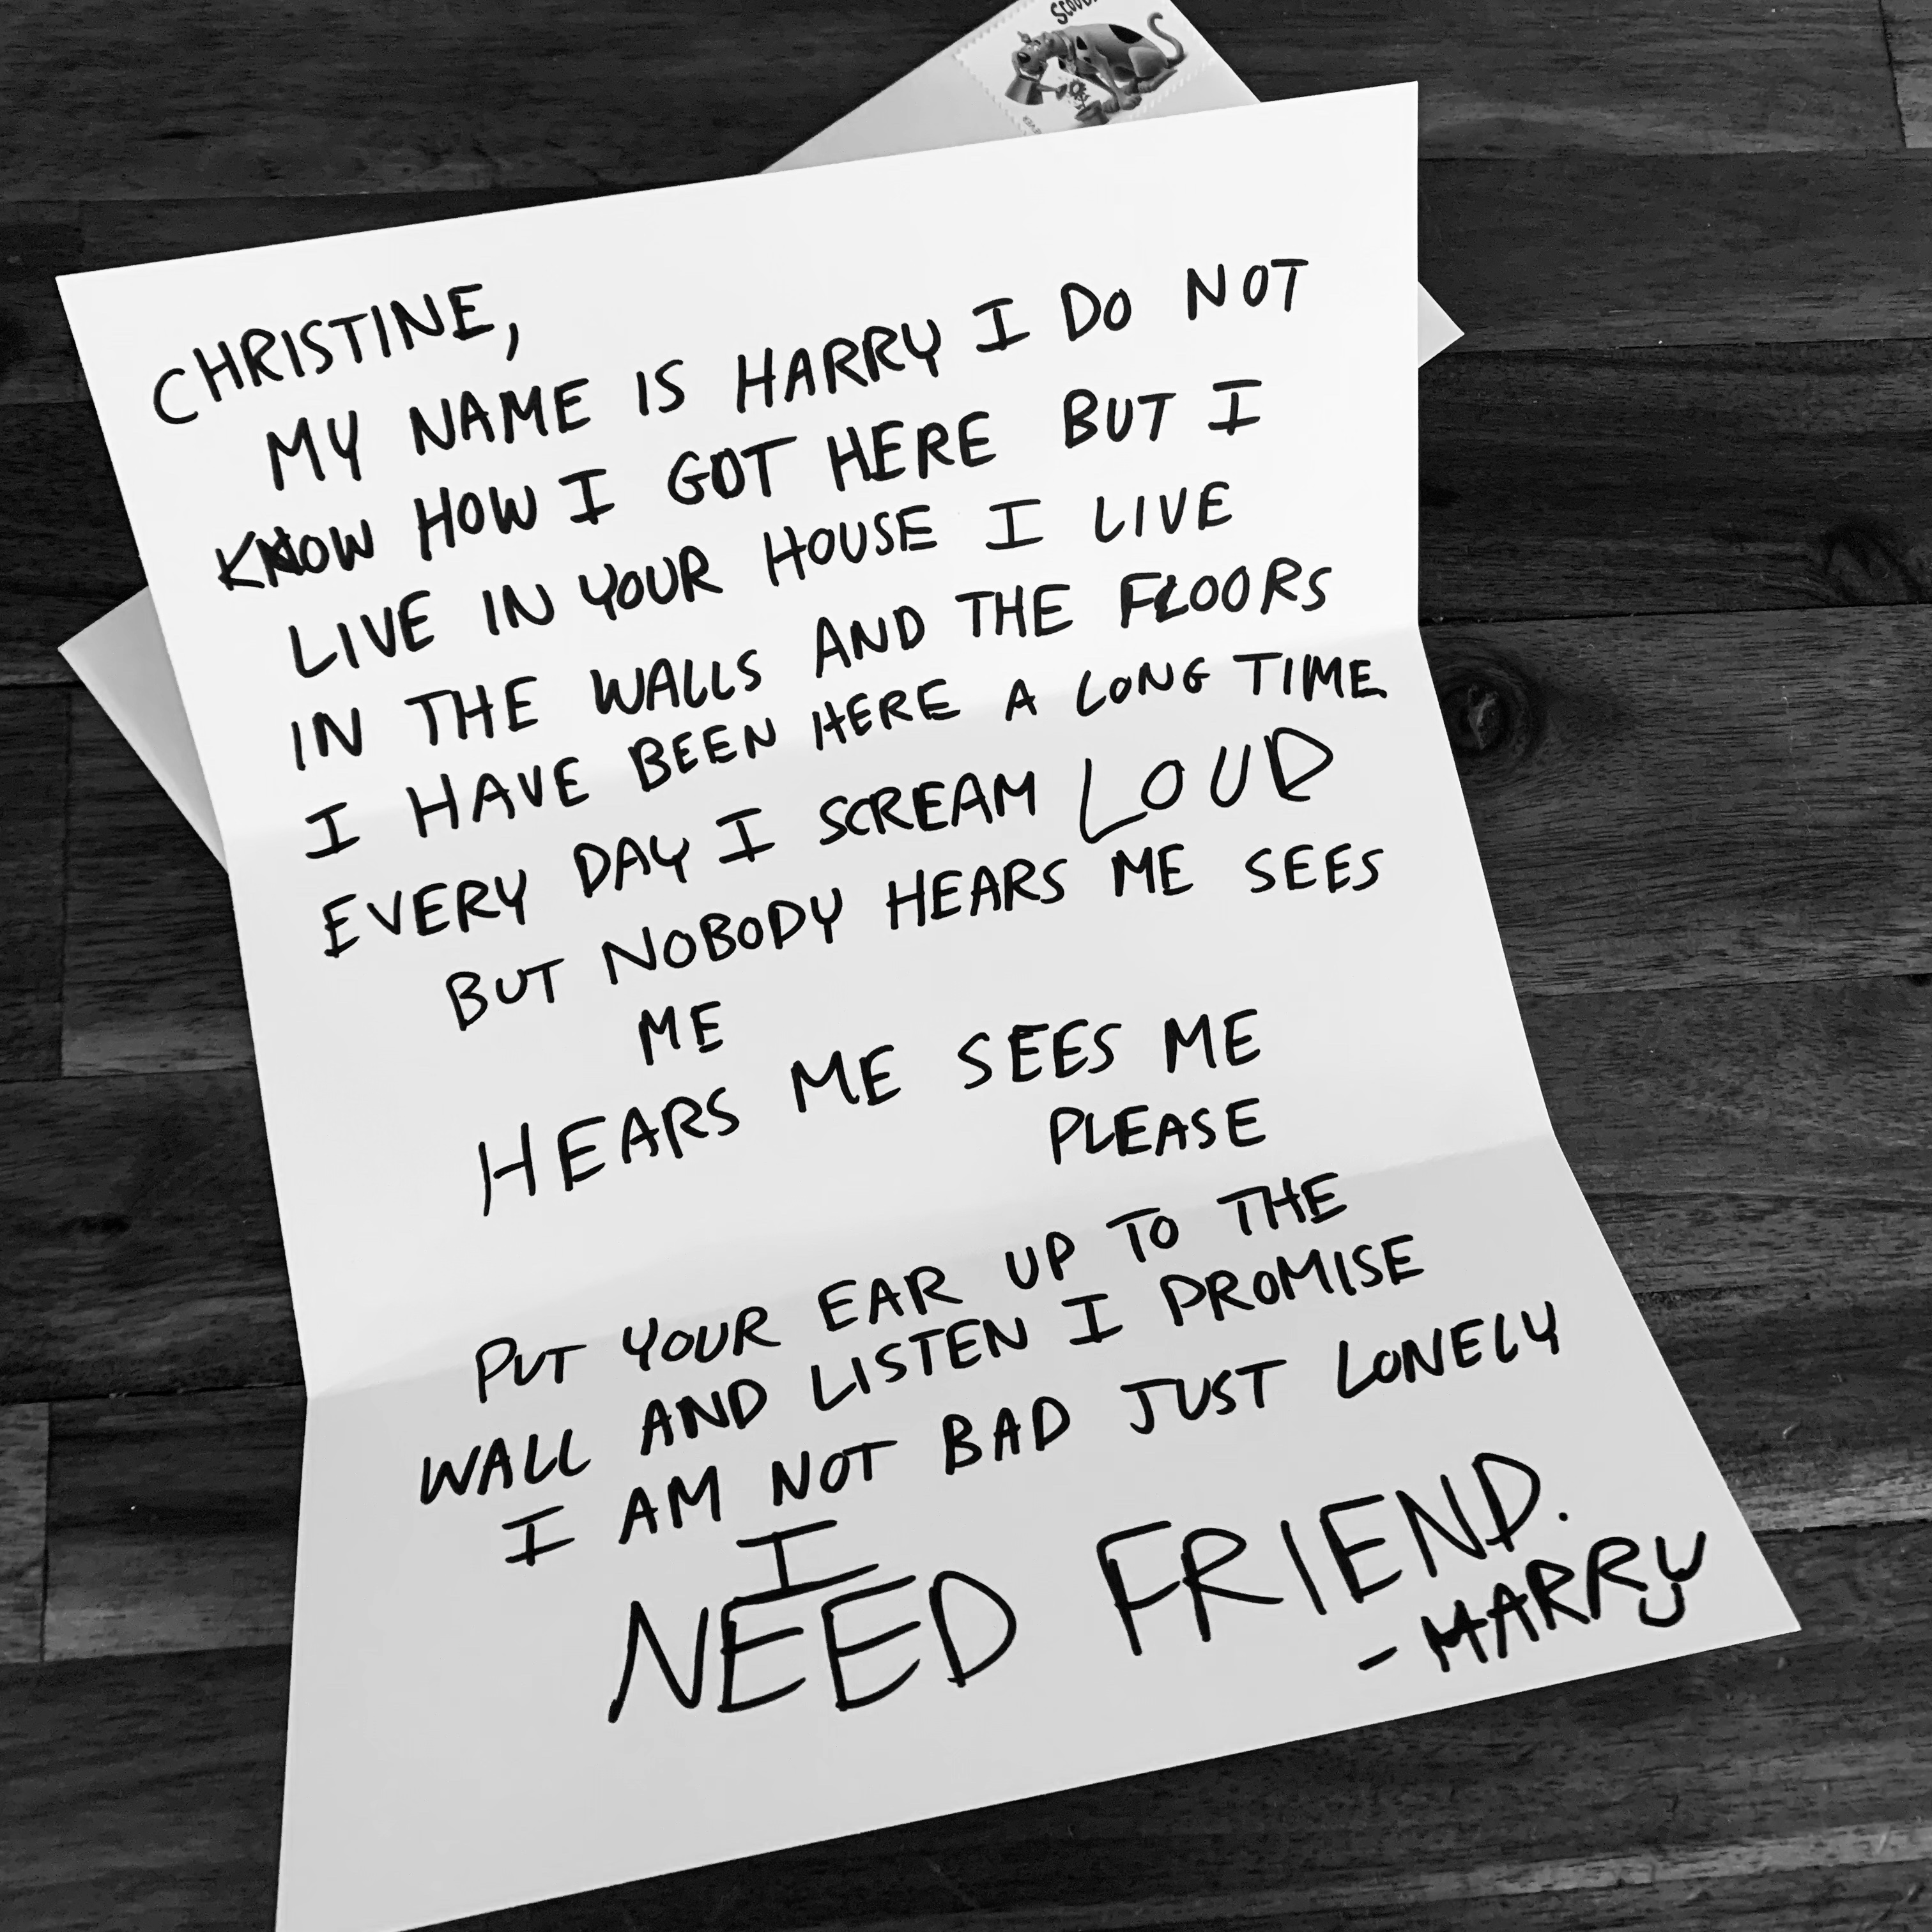 CHRISTINE,
MY NAME IS HARRY I DO NOT
KNOW HOW I GOT HERE BUT I
LIVE IN YOUR HOUSE I LIVE
IN THE WALLS AND THE FLOORS
I HAVE BEEN HERE A LONG TIME.
EVERY DAY I SCREAM LOUD
BUT NOBODY HEARS ME SEES
ME
HEARS ME SEES ME
PLEASE
PUT YOUR EAR UP TO THE
WALL AND LISTEN I PROMISE
I AM NOT BAD JUST LONELY
I
NEED FRIEND.
- HARRY